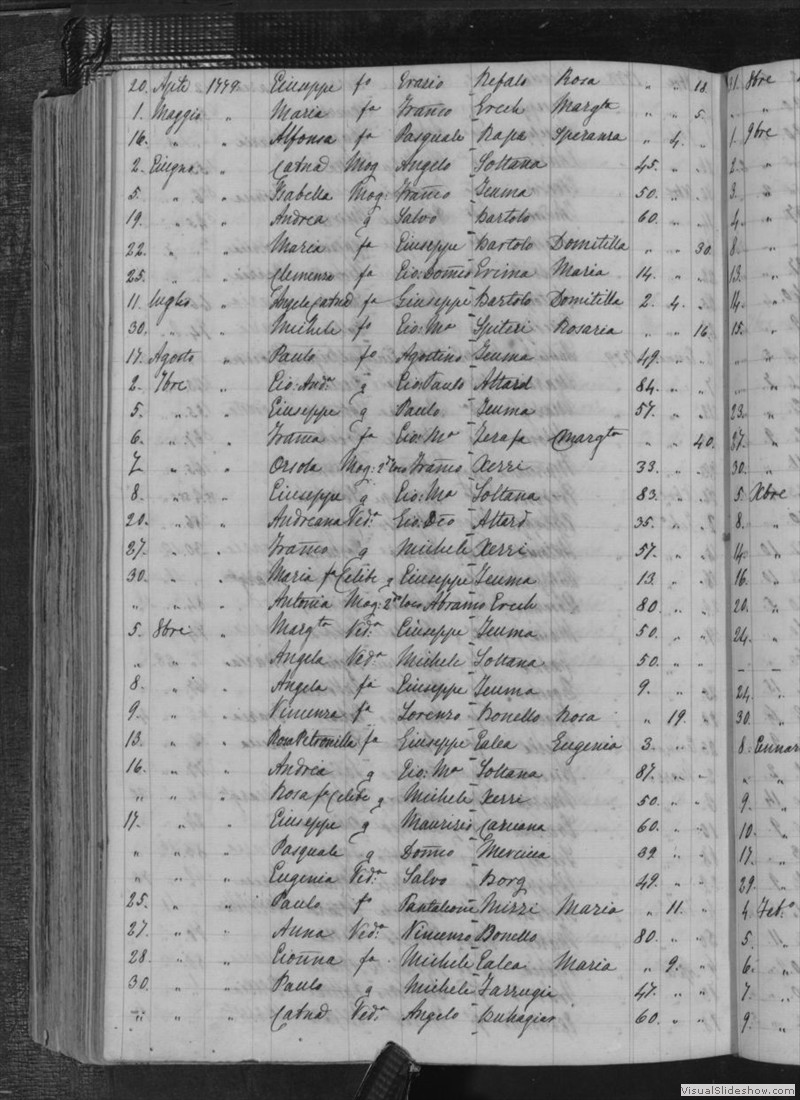 20. Aple 1779. Giuseppe fo Erasio Refalo Rosa " " 18. 31. 8bre
1. Maggio " Maria fa Franco Grech Margta " " 5. " "
16. " " Alfonsa fa Pasquale Rapa Speranza " 4. " 1. 9bre
2. Giugno. " Catna Mog Angelo Soltana 45. " " 2. "
5. " " Isabella Mog: Franco Zeuma 50. " " 3. "
19. " " Andrea q Salvo Bartolo 60. " " 4. "
22. " " Maria fa Giuseppe Bartolo Domitilla " " 30. 8. "
25. " " Clemenza fa Gio: Domco Maria 14. " " 13. "
11. Luglio " Angela Catna fa Giuseppe Bartolo Domitilla 2. 4. " 14. "
30. " " Michele fo Gio: Ma Spiteri Rosaria " " 16. 15. "
17. Agosto " Paulo fo Agostino Zeuma 49. " " " "
2. 7bre " Gio: Anda q Gio: Paulo Attard 84. " " " "
5. " " Giuseppe q Paulo Zeuma 57. " " 23. "
6. " " Franca fa Gio: Ma Zerafa Margta " " 40. 27. "
7. " " Orsola Mog: 2do loco Franco Xerri 33. " " 30. "
8. " " Giuseppe q Gio: Ma Soltana 83. " " 5. Xbre
20. " " Andreana Veda Gio: Attard 35. " " 8. "
27. " " Franco q Michele Xerri 57. " " 14. "
30. " " Maria fa Celibe q Giuseppe Zeuma 13. " " 16. "
" " " Antonia Mog: 2do loco Abramo Grech 80. " " 20. "
5. 8bre " Margta Veda Giuseppe Zeuma 50. " " 24. "
" " " Angela Veda Michele Soltana 50. " "
8. " " Angela fa Giuseppe Zeuma 9. " " 24. "
9. " " Vincenza fa Lorenzo Bonello Rosa " 19. " 30. "
13. " " Rosa Petronilla fa Giuseppe Galea Eugenia 3. " " 8. Ennar
16. " " Andrea q Gio: Ma Soltana 87. " " " "
" " " Rosa fa Celibe q Michele Xerri 50. " " 9. "
17. " " Giuseppe q Maurizio Caruana 60. " " 10. "
" " " Pasquale q Domco Mercieca 32. " " 17. "
" " " Eugenia Veda Salvo Borg 49. " " 29. "
25. " " Paulo fo Pantaleone Mizzi Maria " 11. " 4. Febo
27. " " Anna Veda Vincenzo Bonello 80. " " 5. "
28. " " Gionna fa Michele Galea Maria " 9. " 6. "
30. " " Paulo q Michele Farrugia 47. " " 7. "
" " " Catna Veda Angelo Buhagiar 60. " " 9. "
VisualSlideshow.com